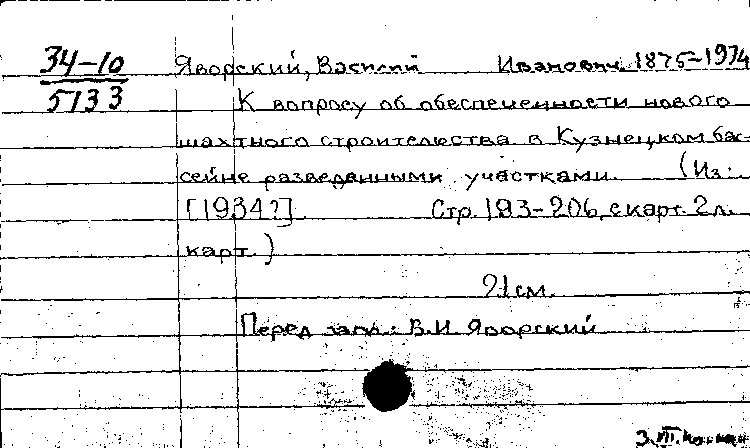 34-10
5133
Яворский, Василий Иванович. 1875-1974
К вопросу об обеспеченности нового
шахтного строительства в Кузнецком бас-
сейне разведанными участками. (Из:
[1934?]. Стр. 193-206, с карт. 2 л.
карт.)
21 см.
Перед загл.: В.И. Яворский